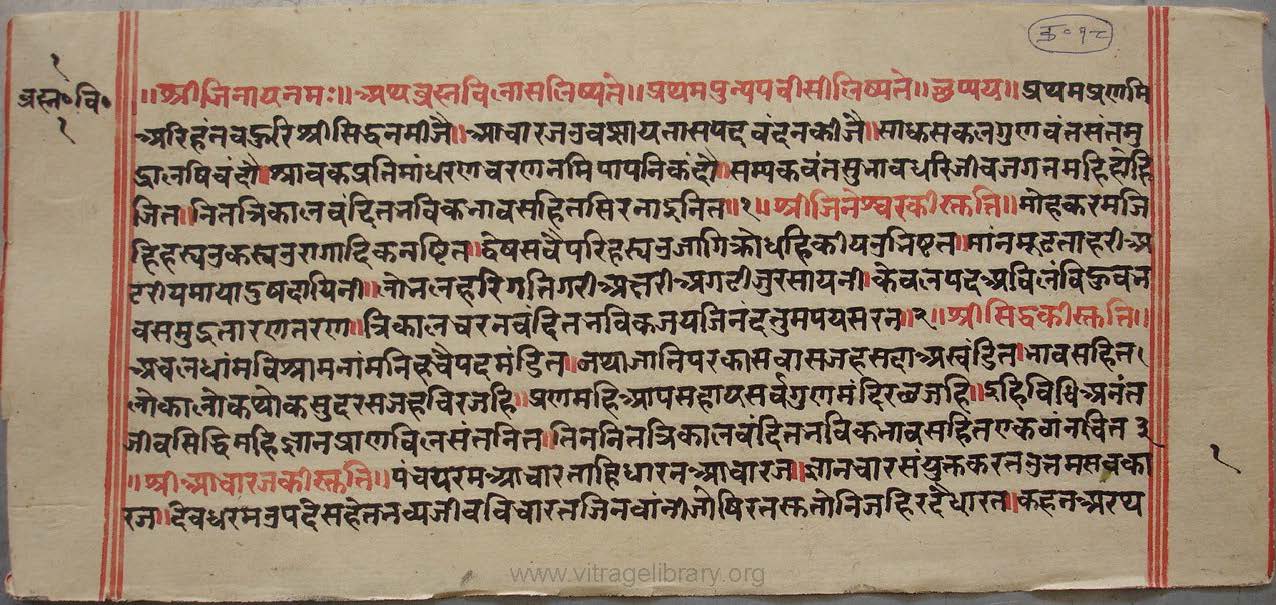 क्र॰१८
१
प्रस्न॰वि॰
१
॥श्रीजिनायनमः॥अथप्रस्नविलासलिष्यते॥प्रथमपुन्यपचीसीलिष्यते॥छप्पय॥प्रथमप्रणमि
अरिहंतवहुरिश्रीसिद्धनमीजै॥आचारजउवझायतासपदवंदनकीजै॥साधसकलगुणवंतसंतमु
द्रालषिवंदौ॥श्रावकप्रतिमांधरणचरणनमिपापनिकंदौ॥सम्यकवंतसुभावधरिजीवजगतमहिहोहि
जित॥तितत्रिकालवंदितभविकभावसहितसिरनाइनित॥१॥श्रीजिनेश्वरकीस्तुति॥मोहकरमजि
हिहस्यउकस्यउरागादिकनष्टित॥द्वेषसवैपरिहस्यउजागिक्रोधहिकीयउभिष्टित॥मांनमूढताहरीअ
टरीयमायादुषदायिनी॥लोभलहरिगतिगरीअत्तरीअगटीजुरसायनी॥केवलपदअविलंविहुवभ
वसमुद्रतारणतरण॥त्रिकालचरनवंदितभविकजयजिनंदतुमपयसरन॥२॥श्रीसिद्धकीस्तुति॥
अचलधांमविश्रामनांमनिहचैपदमंडित॥जथाजातिपरकासवासजहसदाअखंडित॥भावसहित
लोकालोकथोकसुदरसजहविरजहि॥प्रणमहिआपमहायसर्वगुणमंदिरछजहि॥इहिविधिअनंत
जीवसिद्धिमहिज्ञानप्राणविलसंतनित॥तिनतितत्रिकालवंदितभविकभावसहितएकगंनचित३
॥श्रीआचारजकीस्तुति॥पंचयरमआचारताहिधारनआचारज॥ज्ञानचारसंयुक्तकरतउत्तमसवका
रज॥देवधरमउपदेसहेतभव्यजीवविचारतजिनवांनीजोषिरतस्ततोनिजहिरदैधारत॥कहतअरथ
१
www.vitragelibrary.org